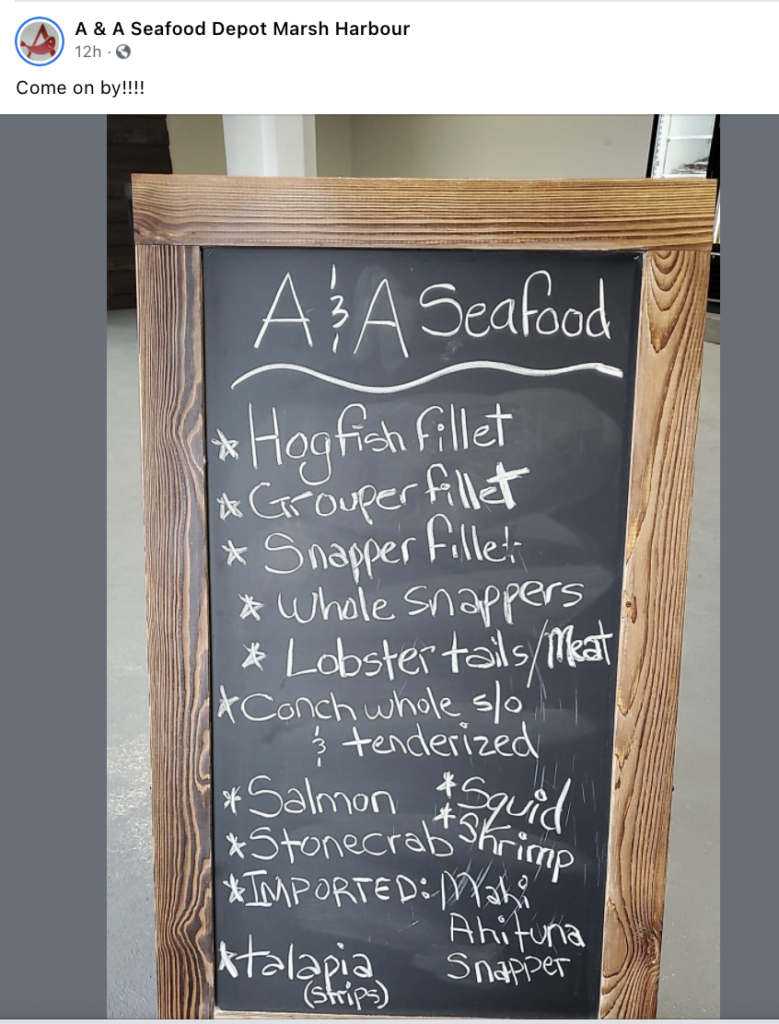 A & A Seafood Depot Marsh Harbour
12h ·
Come on by!!!!
A & A Seafood
* Hogfish fillet
* Grouper fillet
* Snapper fillet
* Whole snappers
* Lobster tails/Meat
* Conch whole s/o
& tenderized
* Salmon
* Squid
* Stonecrab
* Shrimp
* IMPORTED: Mahi
Ahi tuna
Snapper
* talapia
(strips)